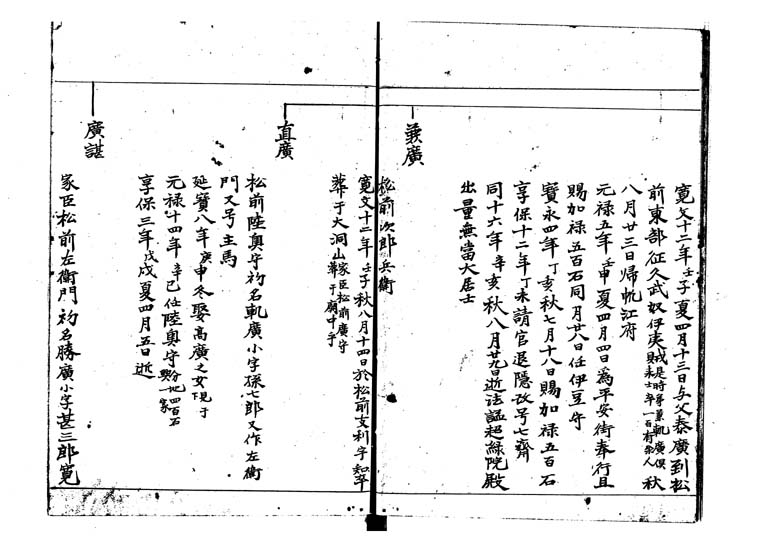 寛文十二年壬子夏四月十三日与父泰廣到松
前東部征久武奴伊夷賊是時
八月廿三日帰帆江府
元禄五年壬申夏四月四日為平安街奉行且
賜加禄五百石同月廿八日任伊豆守
寶永四年丁亥秋七月十八日賜加禄五百石
享保十二年丁未請官退隠改号七齋
同十六年辛亥秋八月廿九日逝法謚超緑院殿
出量無當大居士
義廣
松前次郎兵衛
寛文十二年壬子秋八月十四日於松前
葬于大洞山家臣松前廣守葬于廟中
直廣
松前陸奥守初名軌廣小字孫七郎又作左衛
門又号主馬
延寶八年庚申冬娶高廣之女
元禄十四年辛巳任陸奥守分地四百石
享保三年戊戌夏四月五日逝
廣諶
家臣松前左衛門初名勝廣小字甚三郎寛